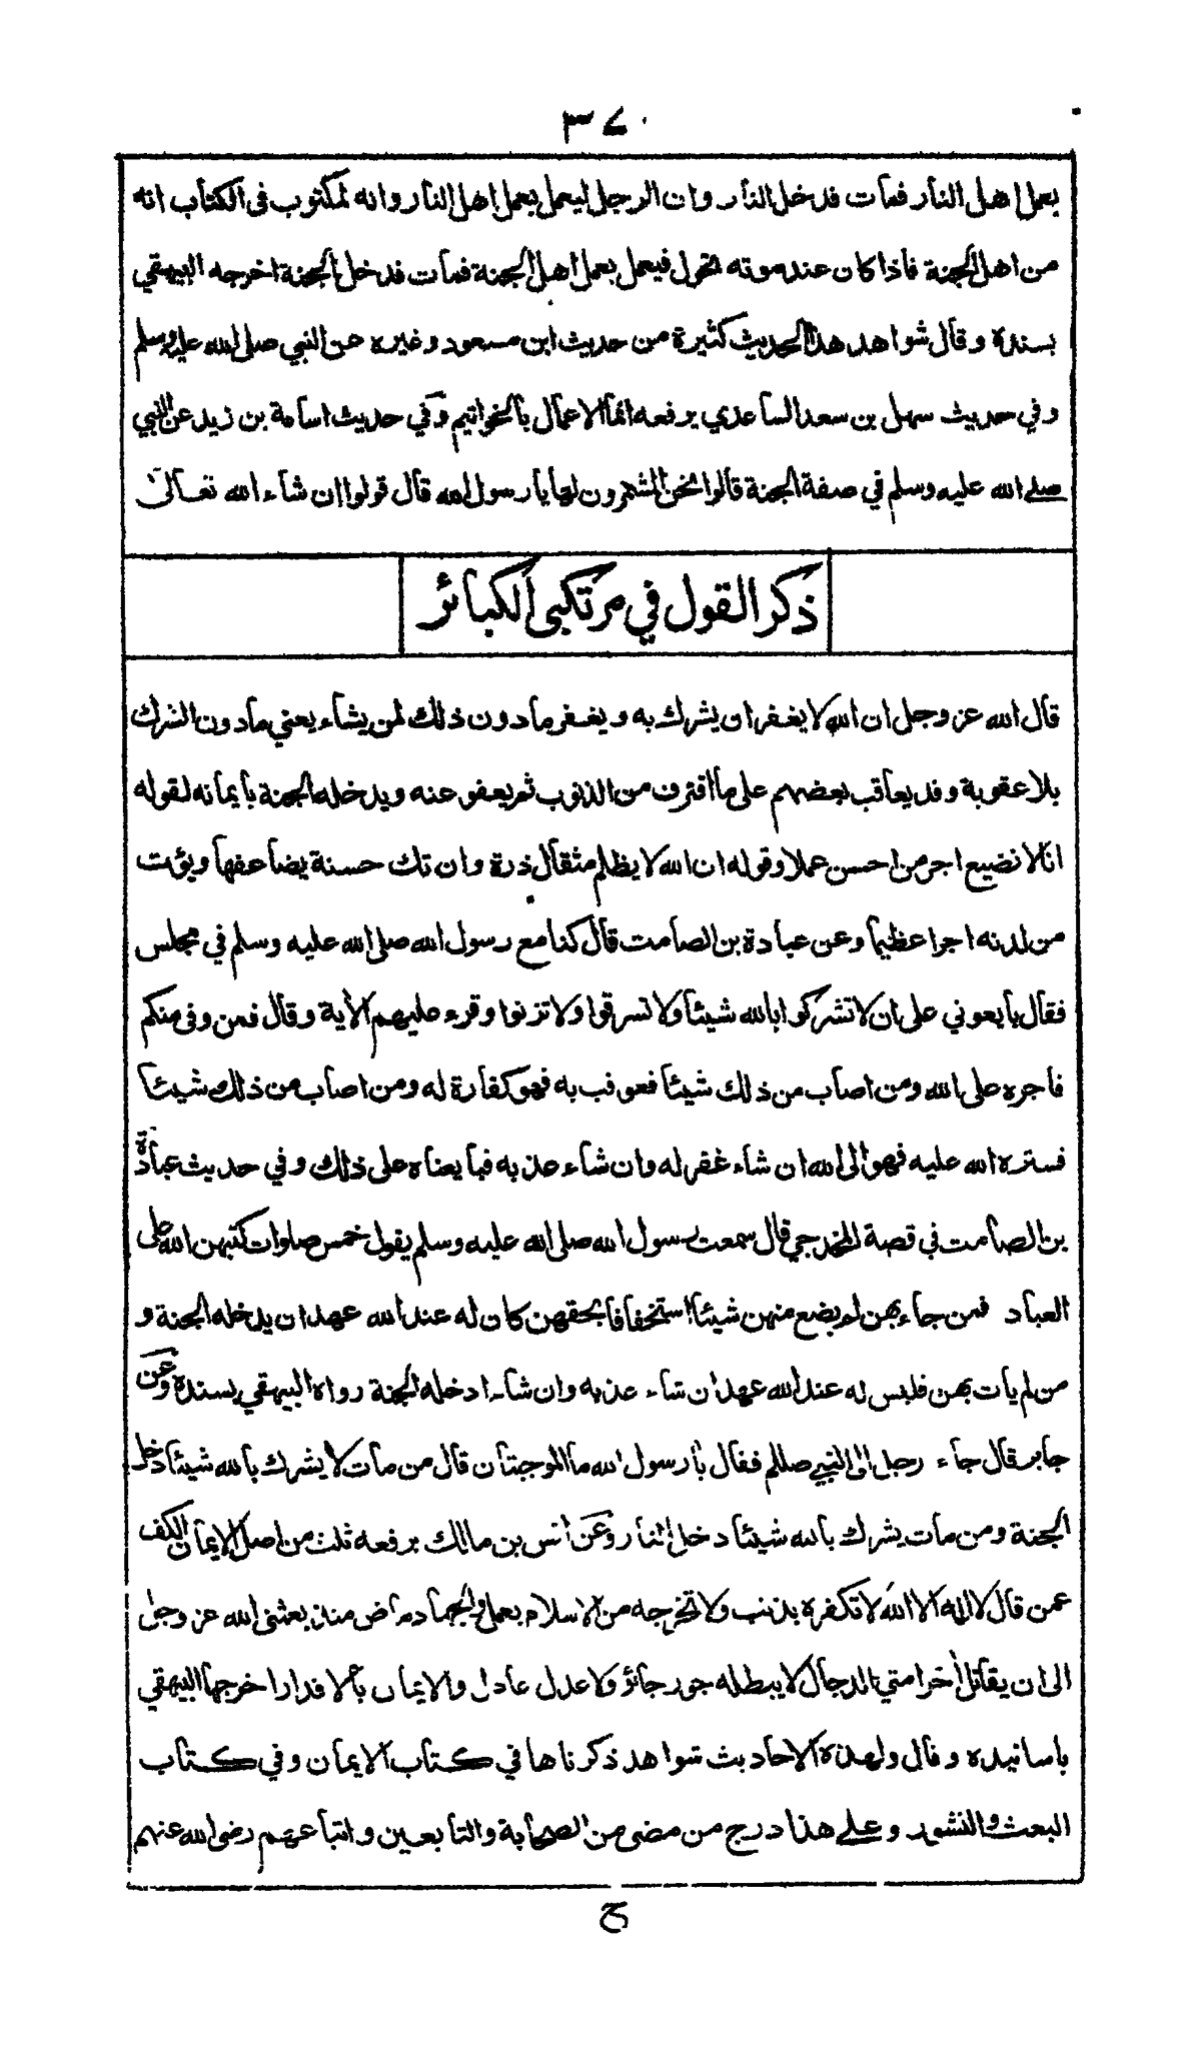 ٣٧٠
بعمل اهل النار فمات فدخل النار وان الرجل ليعمل بعمل اهل النار وانه لمكتوب فى الكتاب انه
من اهل الجنة فاذا كان عند موته تحول فيعمل بعمل اهل الجنة فمات فدخل الجنة اخرجه البيهقي
بسنده وقال شواهد هذا الحديث كثيرة من حديث ابن مسعود وغيره عن النبي صلى الله عليه وسلم
وفي حديث سهل بن سعد الساعدي يرفعه انما الاعمال بالخواتيم وفي حديث اسامة بن زيد عن النبي
صلے الله عليه وسلم في صفة الجنة قالوا نحن المشمرون لها يا رسول الله قال قولوا ان شاء الله تعالى
ذكر القول في مرتكبى الكبائر
قال الله عز وجل ان الله لا يغفر ان يشرك به ويغفر ما دون ذلك لمن يشاء يعني ما دون الشرك
بلا عقوبة وقد يعاقب بعضهم على ما اقترف من الذنوب ثم يعفو عنه ويدخله الجنة بايمانه لقوله
انا لا نضيع اجر من احسن عملا وقوله ان الله لا يظلم مثقال ذرة وان تك حسنة يضاعفها ويؤت
من لدنه اجرا عظيما وعن عبادة بن الصامت قال كنا مع رسول الله صلى الله عليه وسلم في مجلس
فقال بايعوني على ان لا تشركوا بالله شيئا ولا تسرقوا ولا تزنوا وقرء عليهم الأية وقال فمن وفى منكم
فاجره على الله ومن اصاب من ذلك شيئا فعوقب به فهو كفارة له ومن اصاب من ذلك شيئا
فستره الله عليه فهو الى الله ان شاء غفر له وان شاء عذبه فبايعناه على ذلك وفي حديث عبادة
بن الصامت في قصة المخدجي قال سمعت رسول الله صلى الله عليه وسلم يقول خمس صلوات كتبهن الله على
العباد فمن جاء بهن لم يضع منهن شيئا استخفافا بحقهن كان له عند الله عهد ان يدخله الجنة و
من لم يات بهن فليس له عند الله عهد ان شاء عذبه وان شاء ادخله الجنة رواه البيهقي بسنده وعن
جابر قال جاء رجل الى النبي صللم فقال يا رسول الله ما الموجبتان قال من مات لا يشرك بالله شيئا دخل
الجنة ومن مات يشرك بالله شيئا دخل النار وعن انس بن مالك يرفعه ثلث من اصل الايمان الكف
عمن قال لا اله الا الله لا تكفره بذنب ولا تخرجه من الاسلام بعمل والجهاد ماض منذ بعثنى الله عز وجل
الى ان يقاتل اخر امتي الدجال لا يبطله جور جائر ولا عدل عادل والايمان بالاقدار اخرجها البيهقي
باسانيده وقال ولهذه الاحاديث شواهد ذكرناها في كتاب الايمان وفي كتاب
البعث والنشور وعلے هذا درج من مضى من الصحابة والتابعين واتباعهم رضى الله عنهم
ح